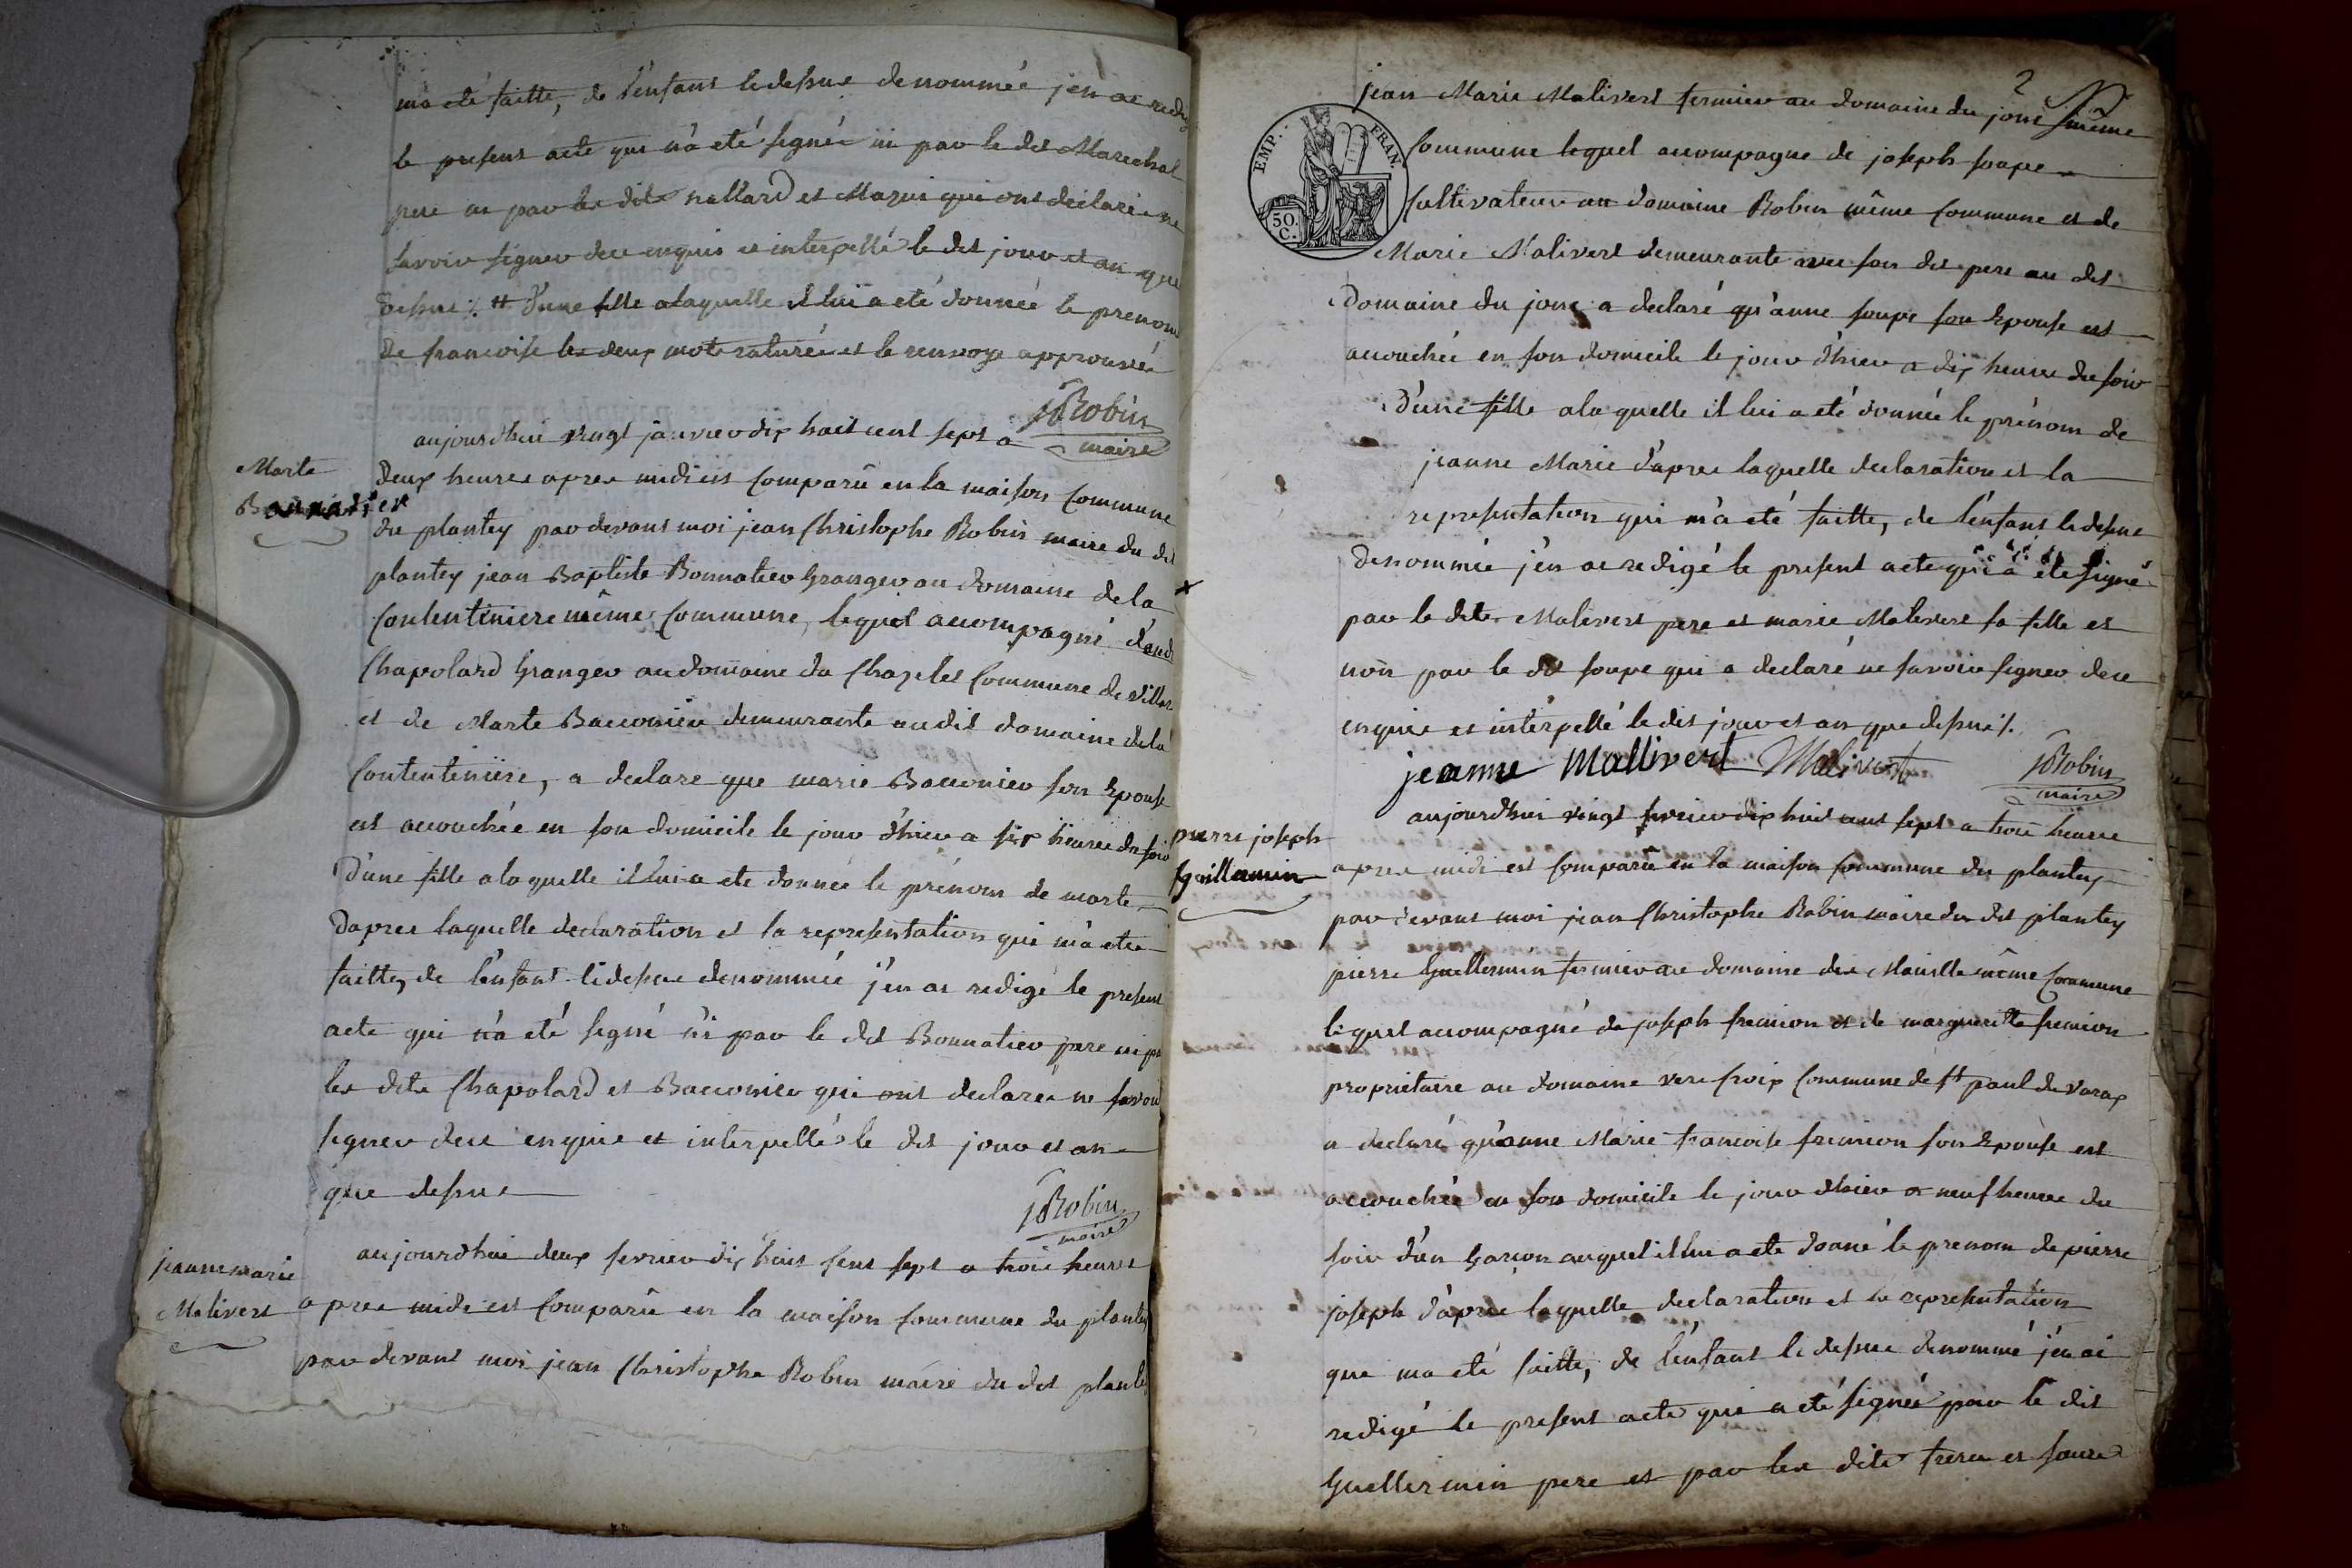 ma eté faitte, de l'enfant ledessus denommée j'en ai redigé
le present acte qui n'a eté signé ni par le dit Marechal
pere ni par les dits nallard et Mazui qui ont declarés ne
savoir signer de ce enquis et interpellé le dit jour et an que
dessus ⁒ # d'une fille a laquelle il lui a eté donnée le prenom
de francoise les deux mots raturés et le renvoye approuvés
JRobin
maire
Marte
Bonnatier
aujourdhui vingt janvier dix huit cent sept a
deux heures apres midi est comparû en la maison commune
du plantey par devant moi jean Christophe Robin maire du dit
plantey jean Baptiste Bonnatier Granger au domaine de la
Contentiniere même Commune, lequel accompagné d'
Chapolard Granger au domaine du Chazelet Commune de villars
et de Marte Bacconier demeurante audit domaine de la
Contenteniere, a declare que marie Bacconier son Epouse
est accouchée en son domicile le jour d'hier a six heures du soir
d'une fille a la quelle il lui a eté donnée le prénom de marte
dapres laquelle declaration et la representation qui m'a eté
faitte, de l'enfant ledessus denommée j'en ai redigé le present
acte qui n'a eté signé ni par le dit Bonnatier pere ni par
les dits Chapolard et Bacconier qui ont declarés ne savoir
signer de ce enquis et interpellés le dit jour et an
que dessus
JRobin
maire
jeanne marie
Malivert
aujourdhui deux fevrier dix huit Cent sept a trois heures
apres midi est Comparû en la maison commune du plantey
par devant moi jean Christophe Robin maire du dit plantey
2
jean Marie Malivert fermier au domaine du jonc même
Commune lequel accompagne de joseph soupe
Cultivateur au domaine Robin même Commune et de
Marie Malivert demeurante avec son dit pere au dit
EMP. FRAN.
50 C.
Domaine du jonc a declaré qu'anne soupe son Epouse est
accouchée en son domicile le jour d'hier a dix heures du soir
d'une fille a la quelle il lui a eté donnée le prénom de
jeanne Marie d'apres laquelle declaration et la
representation qui m'a eté faitte, de l'enfant ledessus
denommée j'en ai redigé le present acte qui a eté signé
par le dits Malivert pere et marie Malivert sa fille et
non par le dit soupe qui a declaré ne savoir signer de ce
enquis et interpellé le dit jour et an que dessus ⁒
jeanne Mallivert Malivert JRobin
maire
pierre joseph
Guillermin
aujourdhui vingt fevrier dix huit cent sept a trois heures
apres midi est comparû en la maison commune du plantey
par devant moi jean Christophe Robin maire du dit plantey
pierre Guillermin fermier au domaine des même Commune
lequel accompagné de joseph fremion et de margueritte fremion
proprietaire au domaine vere croix Commune de St paul de varax
a declaré qu'anne Marie francoise fremion son Epouse est
accouchée en son domicile le jour dhier a neuf heures du
soir d'un Garçon auquel il lui a eté donné le prenom de pierre
joseph d'apres laquelle declaration et la representation
que ma eté faitte, de l'enfant le dessus denommé j'en ai
redigé le present acte qui a eté signés par le dit
Guillermin pere et par les dits freres et soeurs